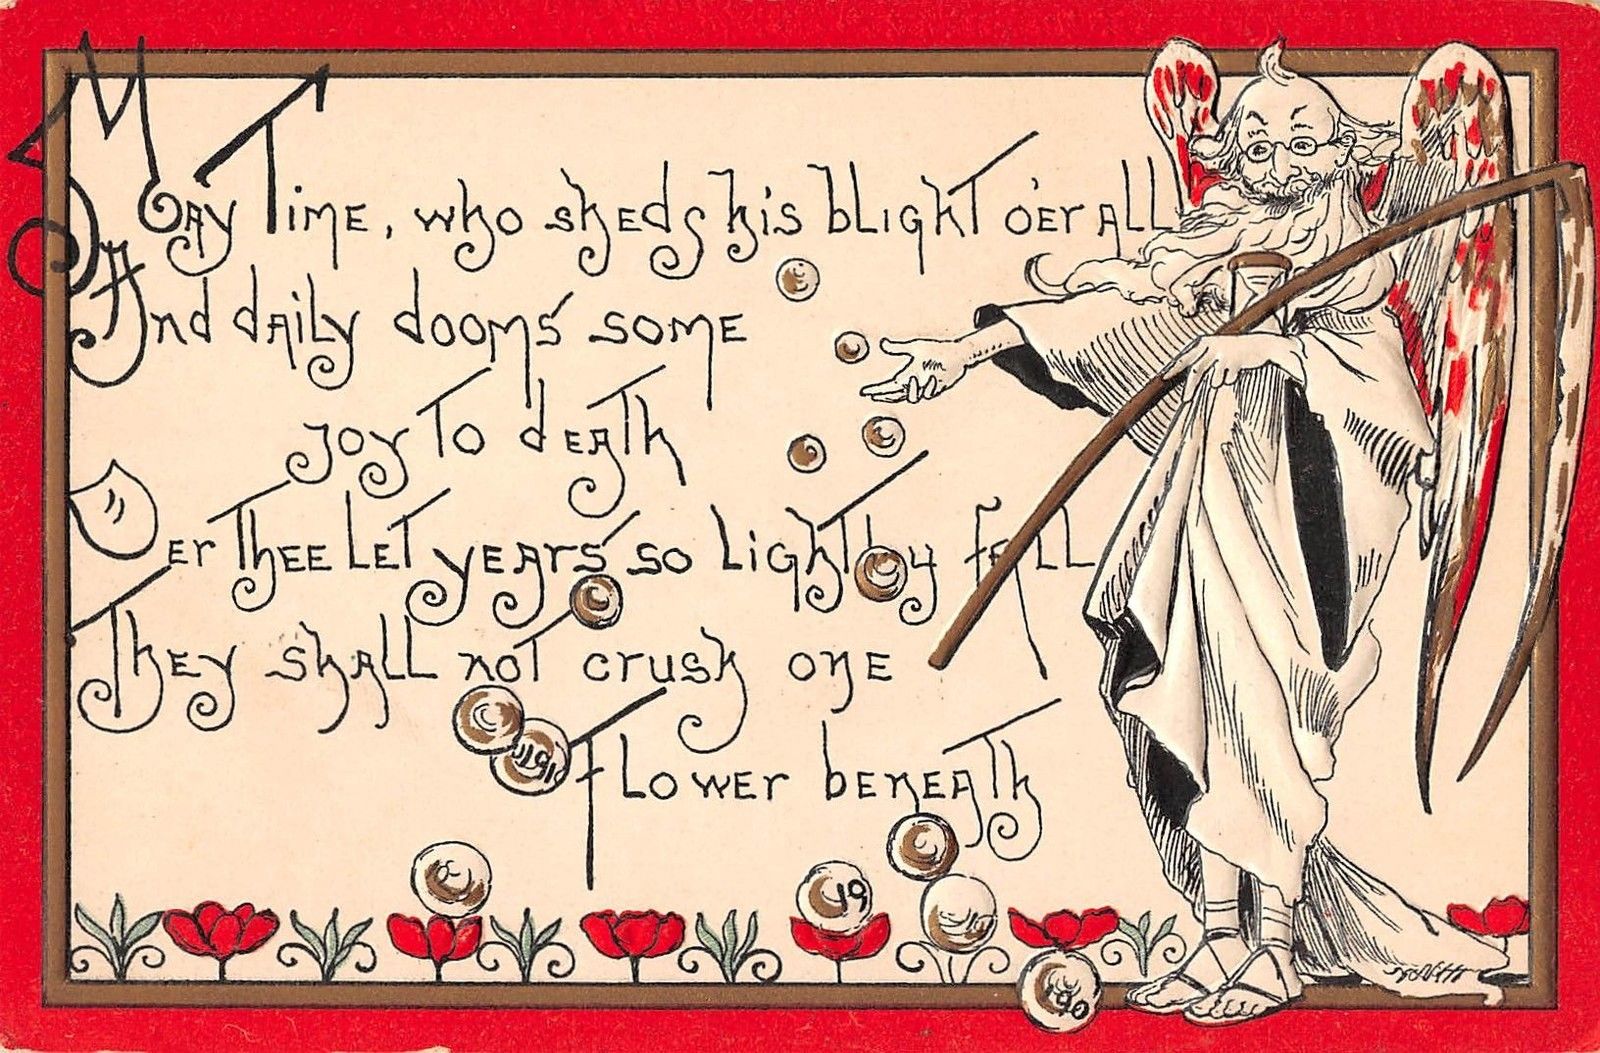 May Time, who sheds his blight o'er all
And daily dooms some
joy to death
O'er thee let years so lightly fall
They shall not crush one
flower beneath
1910
19
190